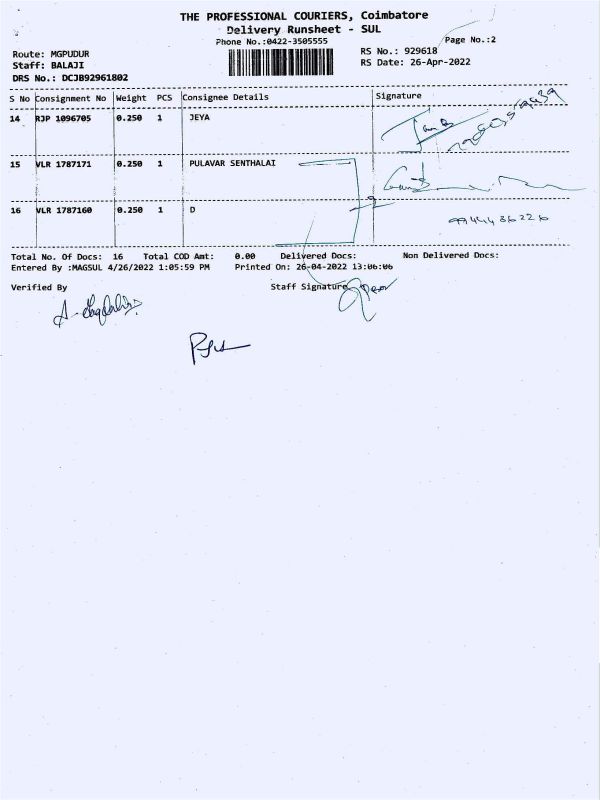 THE PROFESSIONAL COURIERS, Coimbatore
Delivery Runsheet - SUL
Phone No.:0422-3505555
Page No.:2
Route: MGPUDUR
RS No.: 929618
Staff: BALAJI
RS Date: 26-Apr-2022
DRS No.: DCJB92961802
S No Consignment No Weight PCS Consignee Details Signature
14 RJP 1096705 0.250 1 JEYA
15 VLR 1787171 0.250 1 PULAVAR SENTHALAI
16 VLR 1787160 0.250 1 D
9944436226
Total No. Of Docs: 16 Total COD Amt: 0.00 Delivered Docs: Non Delivered Docs:
Entered By :MAGSUL 4/26/2022 1:05:59 PM Printed On: 26-04-2022 13:06:06
Verified By Staff Signature